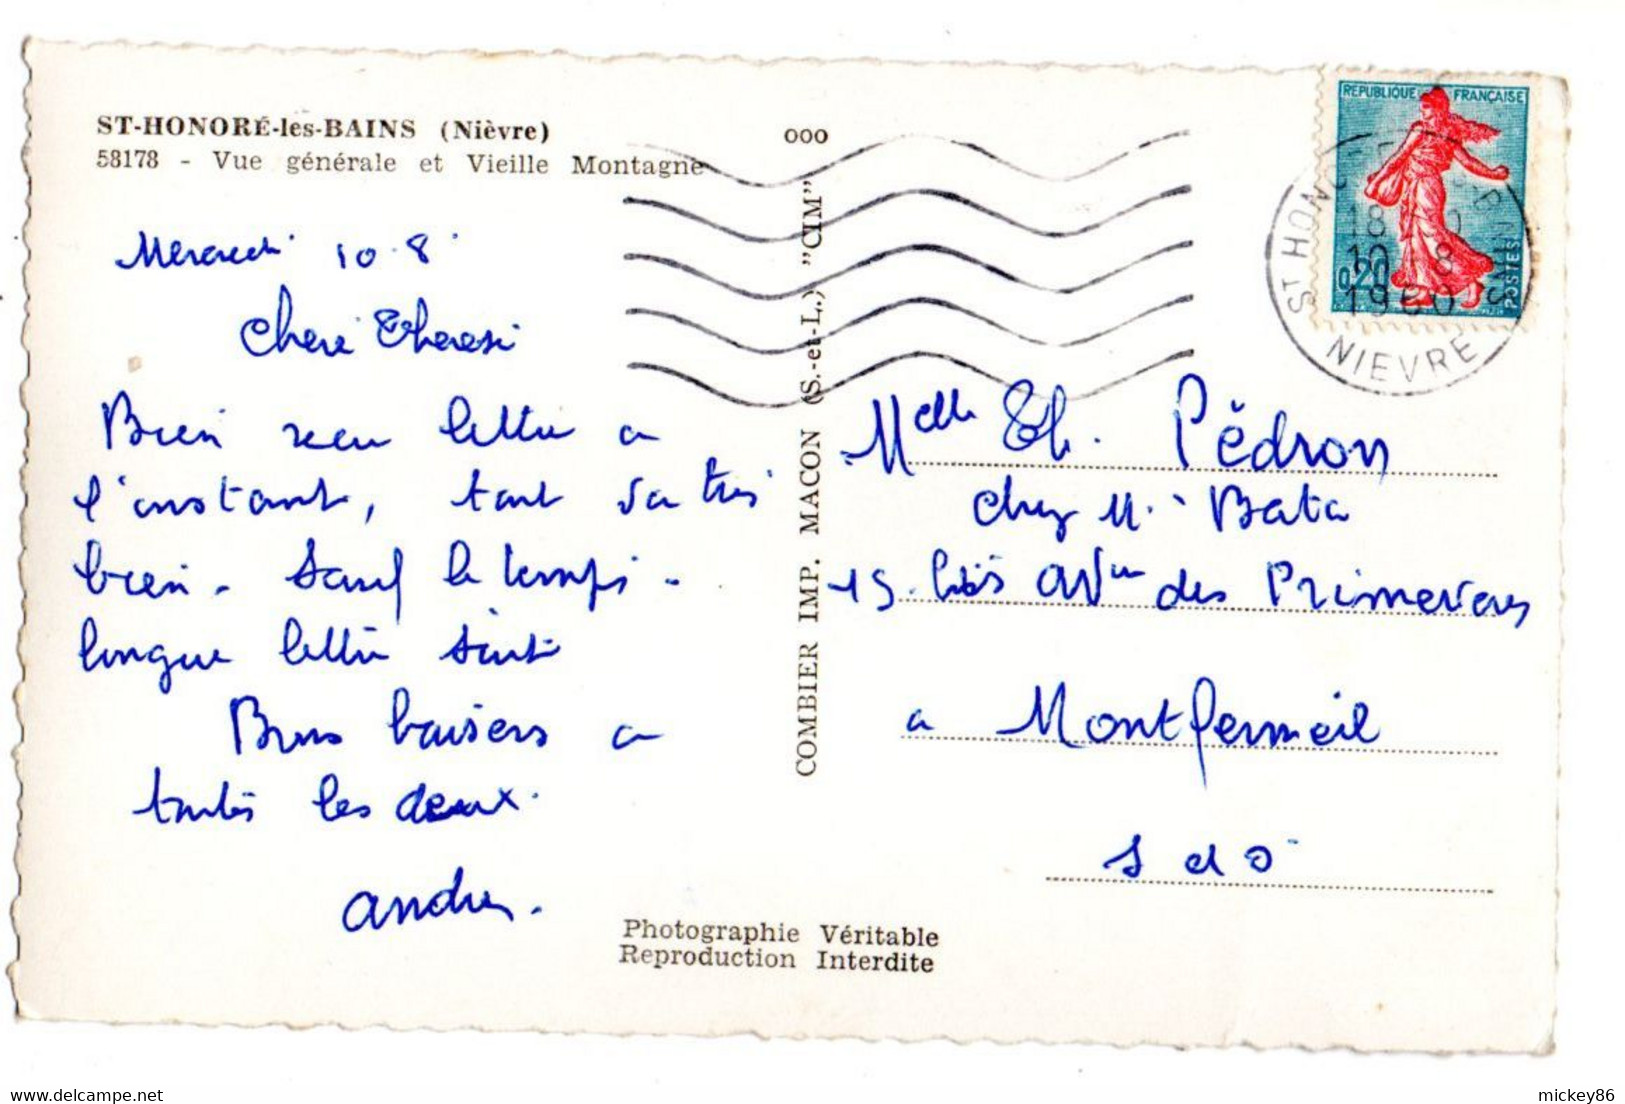 ST-HONORÉ-les-BAINS (Nièvre)
58178 - Vue générale et Vieille Montagne
Mercredi 10.8
Chère Thérèse
Bien reçu lettre a
l'instant, tout va très
bien. Sauf le temps -
longue lettre suit
Bons baisers a
toutes les deux.
André.
ooo
COMBIER IMP. MACON (S.-et-L.) "CIM"
Photographie Véritable
Reproduction Interdite
REPUBLIQUE FRANÇAISE
0,20
POSTES
ST HONORE
18
10 8
1960
NIEVRE
Melle Th. Pédron
chez M. Bata
15 bis Avue des Primevères
a Montfermeil
S et O
mickey86